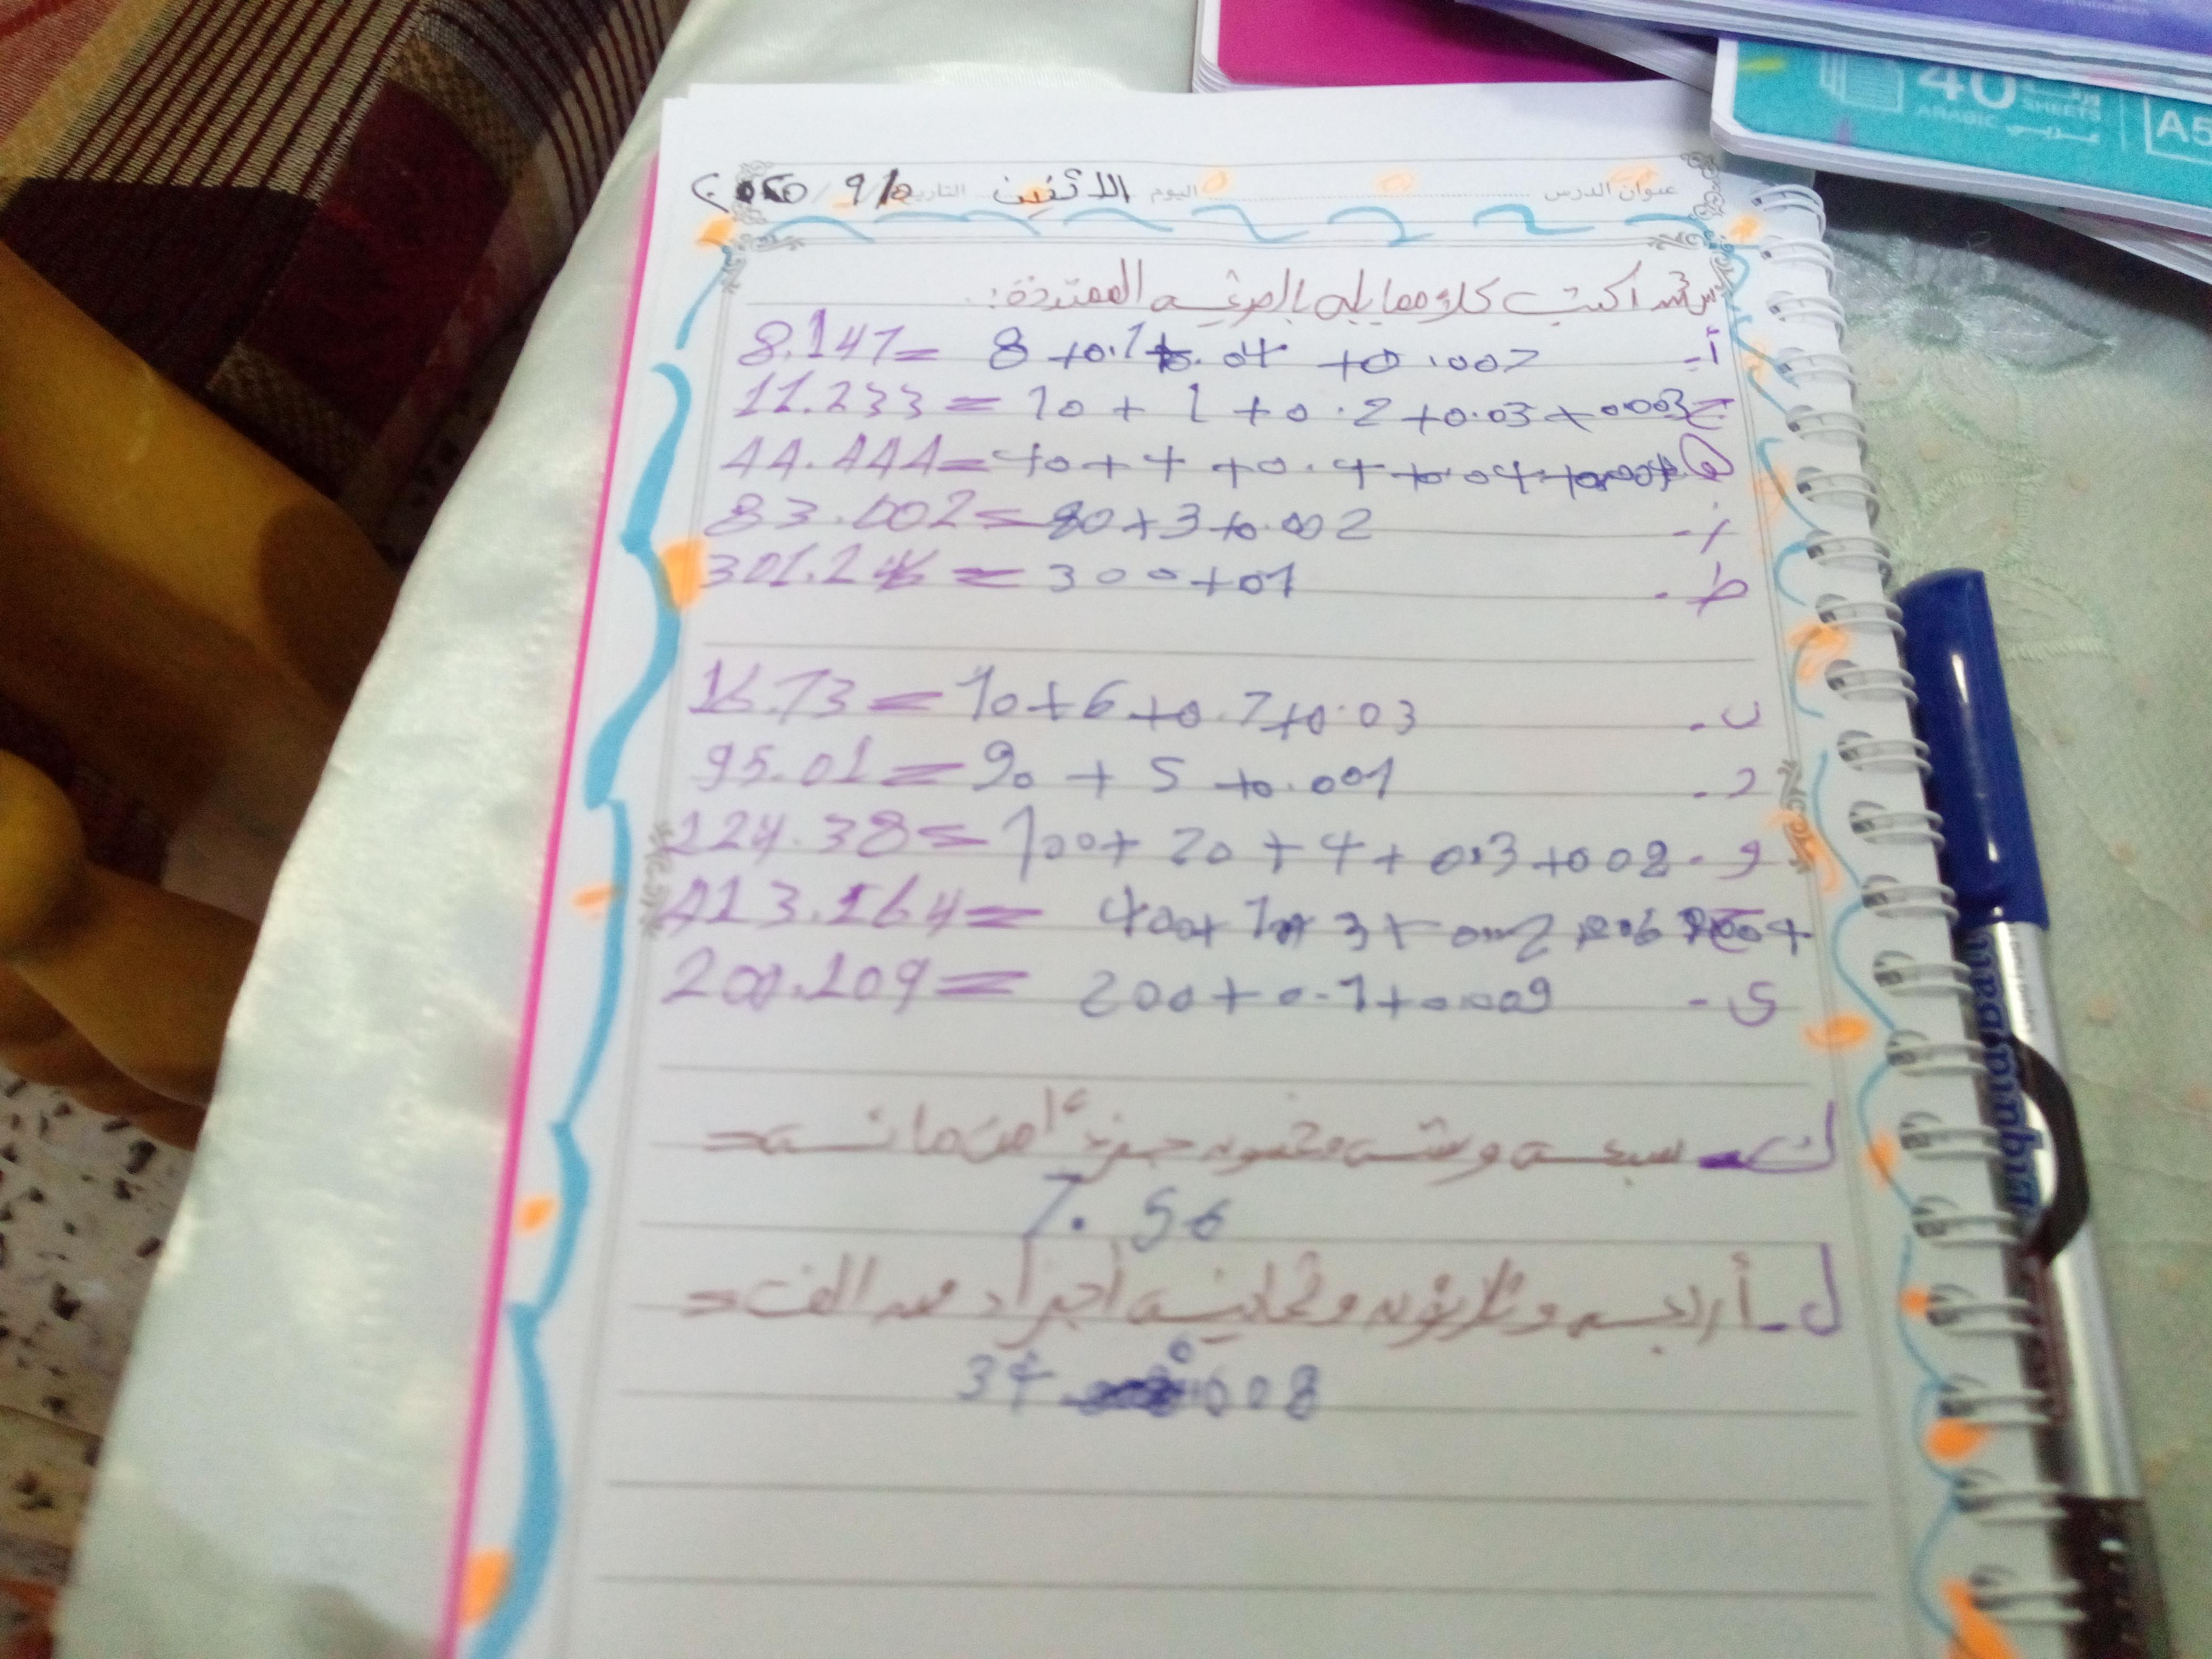 40 ورقة
SHEETS
ARABIC عربي
A5
عنوان الدرس اليوم الاثنين التاريخ 9/15
اكتب كلا مما يلي بالصيغه الممتدة:
أ- 8.147= 8 +0.1+0.04 +0.007
ج 11.233 = 10 + 1 +0.2+0.03+0.003
ه 44.444=40+4+0.4+0.04+0.004
ز- 83.002=80+3+0.002
ط- 301.246 = 300+01
ب- 16.73=10+6+0.7+0.03
د- 95.01=90 + 5 +0.001
و- 124.38=100+ 20 +4+0.3+008
413.164= 400+10+3+
ي- 200.109= 200+0.1+0.009
ك- سبعة وستة وخمسون جزءا من مائة=
7.56
ل- أربعة وثلاثون وثمانية أجزاء من الف=
34 008